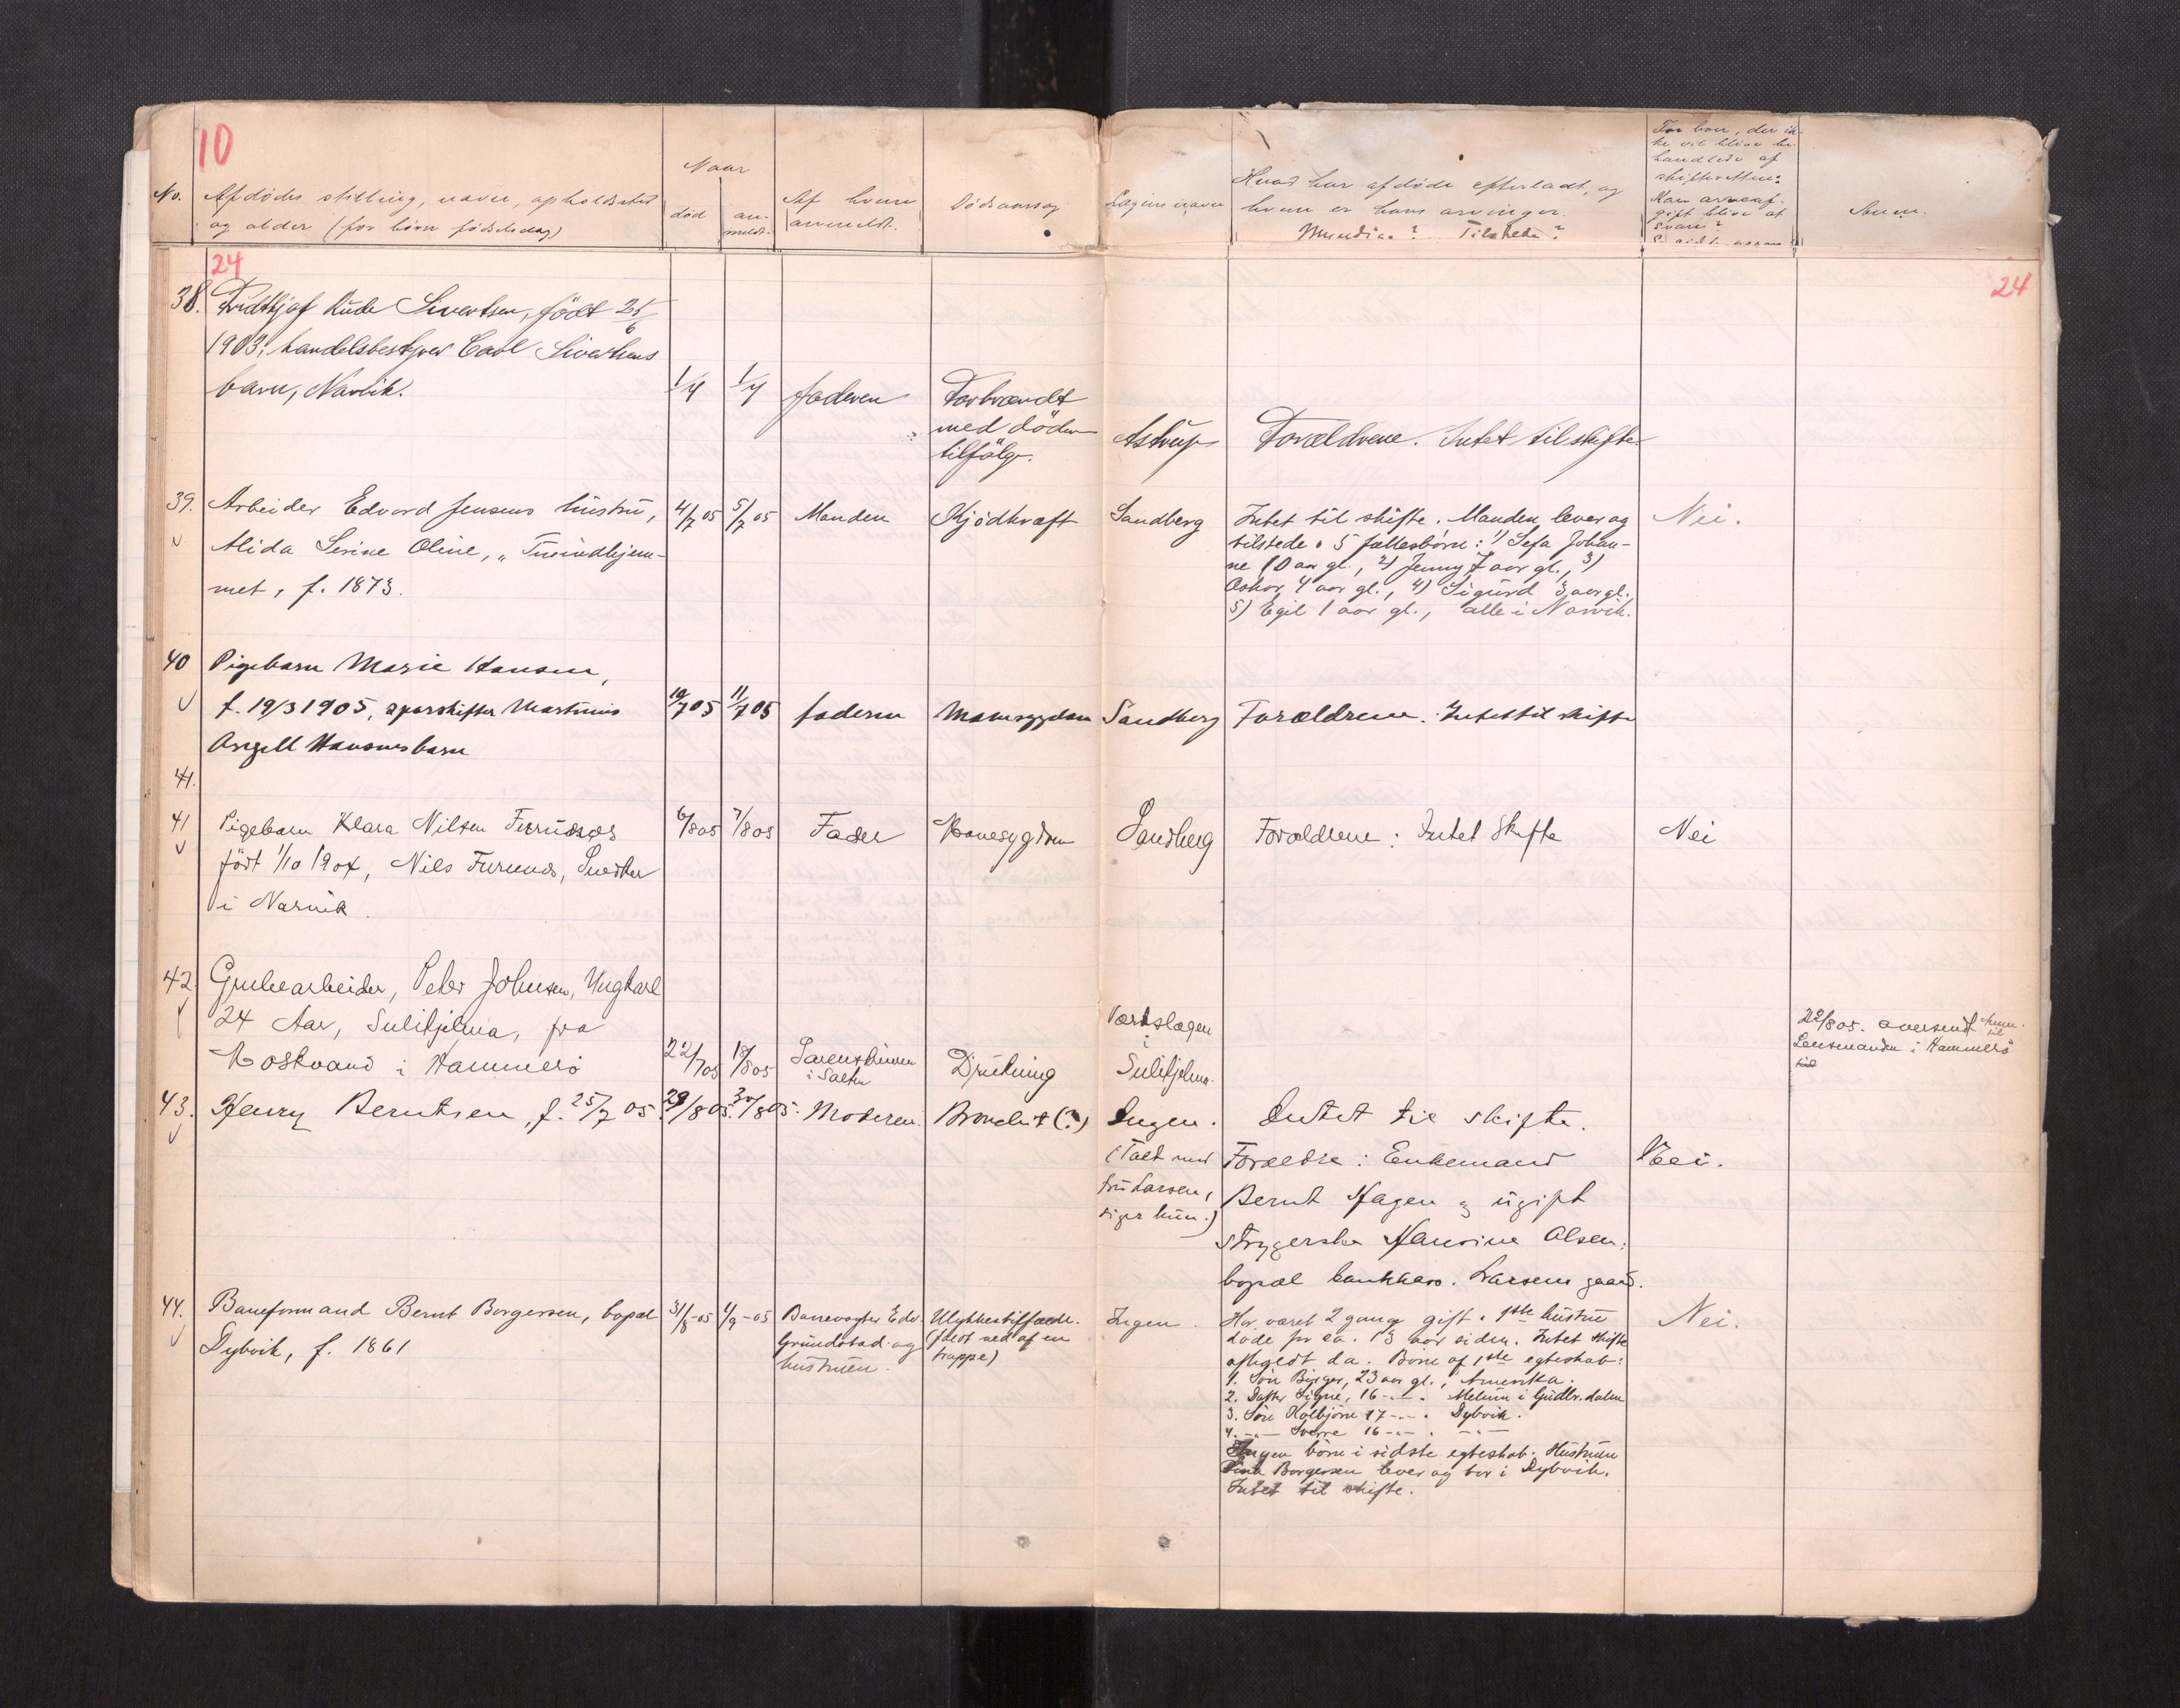 10
No.
Afdødes stilling, navn, opholdssted
og alder (for børn fødselsdag)
Naar
død
an-
meldt.
Af hvem
anmeldt.
Dødsaarsag
Lægens navn
Hvad har afdøde efterladt, og
hvem er hans arvinger.
Myndige? Tilstede?
For boer, der ik-
ke vil blive be-
handlede af
skifteretten:
Kan arveaf-
gift blive at
svare?
Anm.
24
24
38. Fridthjof Rude Sivertsen, födt 25/6
1903, handelsbestyrer Carl Sivertsens
barn, Narvik.
1/7
1/7
faderen
Forbrændt
med döden
tilfölge.
Astrup
Forældrene. Intet til skifte
39. Arbeider Edvard Jensens hustru,
Alida Serine Oline, "Tusindhjem-
met, f. 1873.
4/7 05
5/7 05
Manden
Kjödkræft
Sandberg
Intet til skifte. Manden lever og
tilstede. 5 fællesbörn: 1) Sefa Johan-
ne 10 aar gl., 2) Jenny 7 aar gl., 3)
Oskar 4 aar gl., 4) Sigurd 3 aar gl.
5) Egil 1 aar gl., alle i Narvik.
Nei.
40 Pigebarn Marie Hansen,
f. 19/3 1905, sporskifter Martinus
Angell Hansens barn
10/7 05
11/7 05
faderen
Mavesygdom
Sandberg
Forældrene. Intet til skifte
41.
41 Pigebarn Klara Nilsen Furunes
födt 1/10 1904, Nils Furunes, Snedker
i Narvik.
6/8 05
7/8 05
Fader
Mavesygdom
Sandberg
Forældrene: Intet Skifte
Nei
42. Grubearbeider, Peter Johnsen, Ungkarl
24 Aar, Sulitjelma, fra
Kostvand i Hammerö
22/7 05
18/8 05
Sorenskriveren
i Salten
Drukning
Værkslægen
i
Sulitjelma.
22/8 05. oversendt Anm. til
Lensmanden i Hammerö
43. Henry Berntsen, f. 25/7 05.
29/8 05.
30/8 05.
Moderen.
Bronchit (?)
Ingen.
(Talt med
fru Larsen,
siger hun.)
Intet til skifte.
Forældre: Enkemand
Bernt Hagen og ugift
strygerske Hansine Olsen;
bopæl bankkass. Larsens gaard.
Nei.
44. Baneformand Bernt Borgersen, bopæl
Dybvik, f. 1861
31/8-05
1/9-05
Banevogter Edv.
Grundstad og
hustruen.
Ulykkestilfælde.
(faldt ned af en
trappe)
Ingen.
Har været 2 gange gift. 1ste hustru
döde for ca. 13 aar siden. Intet skifte
afholdt da. Börn af 1ste egteskab:
1. Sön Birger, 23 aar gl., Amerika.
2. Datter Signe, 16 -"- . Melum i Gudbr.dalen
3. Sön Kolbjörn 17 -"- . Dybvik.
4. -"- Sverre 16 -"- . -"-
Ingen börn i sidste egteskab. Hustruen
Borgersen lever og bor i Dybvik.
Intet til skifte.
Nei.